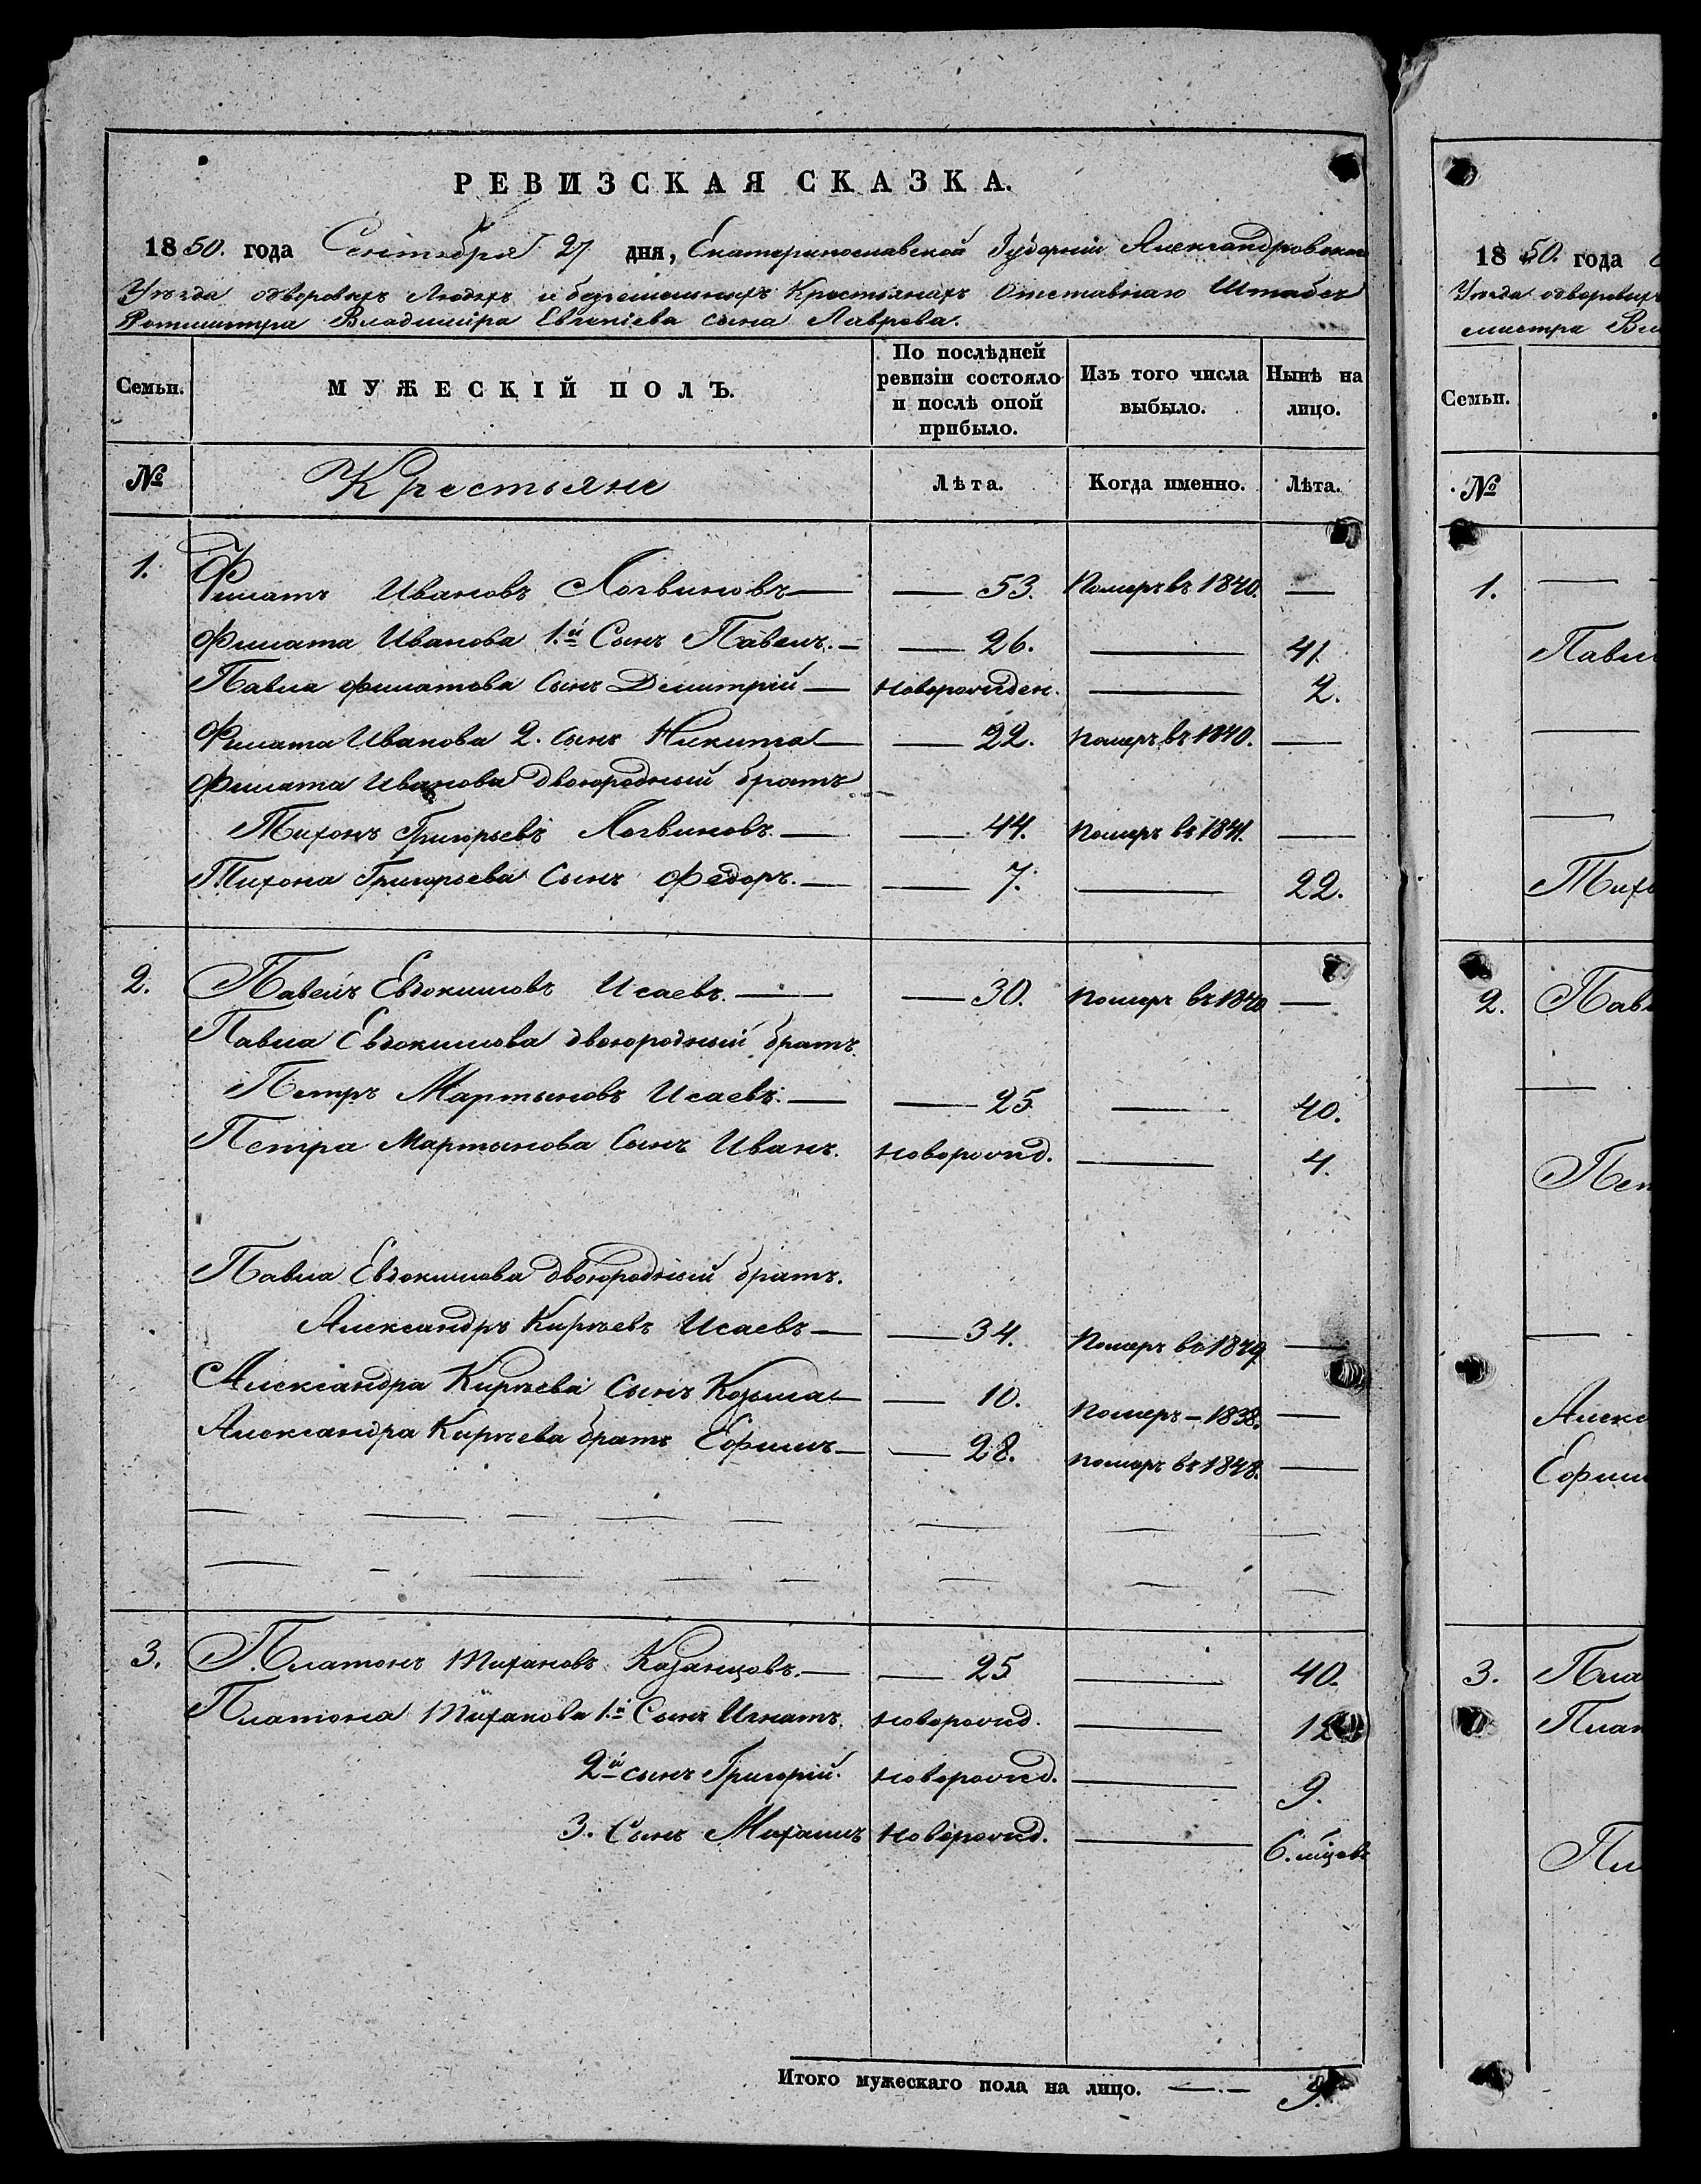 РЕВИЗСКАЯ СКАЗКА.
1850. года Сентября 27 дня, Екатеринославской Губерніи Александровскаго
Уѣзда одворовыхъ Людяхъ и безземельныхъ Крестьянахъ Отставнаго Штабсъ
Ротмистра Владиміра Евгеніева сына Лаврова.
Семьи. МУЖЕСКІЙ ПОЛЪ. По послѣдней ревизіи состояло и послѣ оной прибыло. Изъ того числа выбыло. Нынѣ на лицо.
№ Крестьяне Лѣта. Когда именно. Лѣта.
1. Филатъ Ивановъ Логвиновъ — — 53. Померъ въ 1840. —
Филата Иванова 1.й Сынъ Павелъ. — — 26. — 41.
Павла Филатова Сынъ Дмитрій — новорожден. — 2.
Филата Иванова 2. сынъ Никита — — 22. померъ въ 1840. —
Филата Иванова двоюродный братъ
Тихонъ Григорьевъ Логвиновъ. — — 44. померъ въ 1841. —
Тихона Григорьева Сынъ Федоръ. — — 7. — 22.
2. Павелъ Евдокимовъ Исаевъ. — — 30. померъ въ 1840 —
Павла Евдокимова двоюродный братъ.
Петръ Мартыновъ Исаевъ. — — 25 — 40.
Петра Мартынова Сынъ Иванъ. новорожд. — 4.
Павла Евдокимова двоюродный братъ.
Александръ Кирѣевъ Исаевъ — — 34. Померъ въ 1849 —
Александра Кирѣева Сынъ Козьма — — 10. Померъ — 1838. —
Александра Кирѣева братъ Ефимъ — — 28. померъ въ 1848. —
3. Платонъ Тихановъ Казанцовъ. — — 25 — 40.
Платона Тиханова 1.й Сынъ Игнатъ. новорожд. — 12
2й сынъ Григорій. новорожд. — 9.
3. Сынъ Михаилъ новорожд. — 6. мцовъ
Итого мужескаго пола на лицо. — 9.
1850. года
Уѣзда одворовыхъ
мистра
Семьи.
№
1.
2.
3.